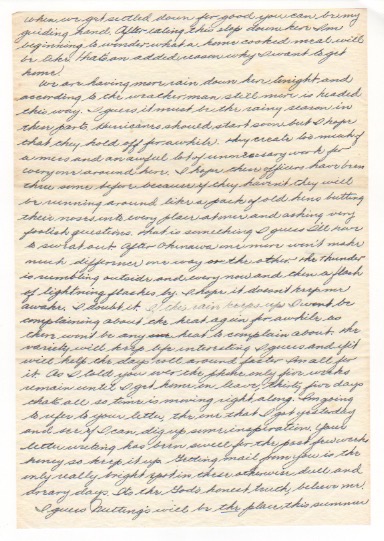 when we get settled down for good you can be my
guiding hand. After eating this slop down here I'm
beginning to wonder what a home cooked meal will
be like. That's an added reason why I want to get
home!
We are having more rain down here tonight and
according to the weather man still more is headed
this way. I guess it must be the rainy season in
these parts. Hurricanes should start soon but I hope
that they hold off for awhile. They create too much of
a mess and an awful lot of unnecessary work for
everyone around here. I hope these officers have been
thru some before because if they haven't they will
be running around like a pack of old hens butting
their noses into every place at once and asking very
foolish questions. That is something I guess I'll have
to sweat out. After Okinawa one more won't make
much difference one way or the other. The thunder
is rumbling outside and every now and then a flash
of lightning flashes by. I hope it doesn't keep me
awake. I doubt it. If the rain keeps up I won't be
complaining about the heat again for awhile as
there won't be any heat to complain about. The
variety will keep things interesting I guess and if it
will help the days roll around faster I'm all for
it. As I told you over the phone only five weeks
remain until I get home on leave, thirty five days
that's all, so time is moving right along. Am going
to refer to your letter, the one that I got yesterday
and see if I can dig up some inspiration. Your
letter writing has been swell for the past few weeks
honey so keep it up. Getting mail from you is the
only really bright spot in these otherwise dull and
dreary days. It's the God's honest truth, believe me!
I guess Nutting's will be the place this summer